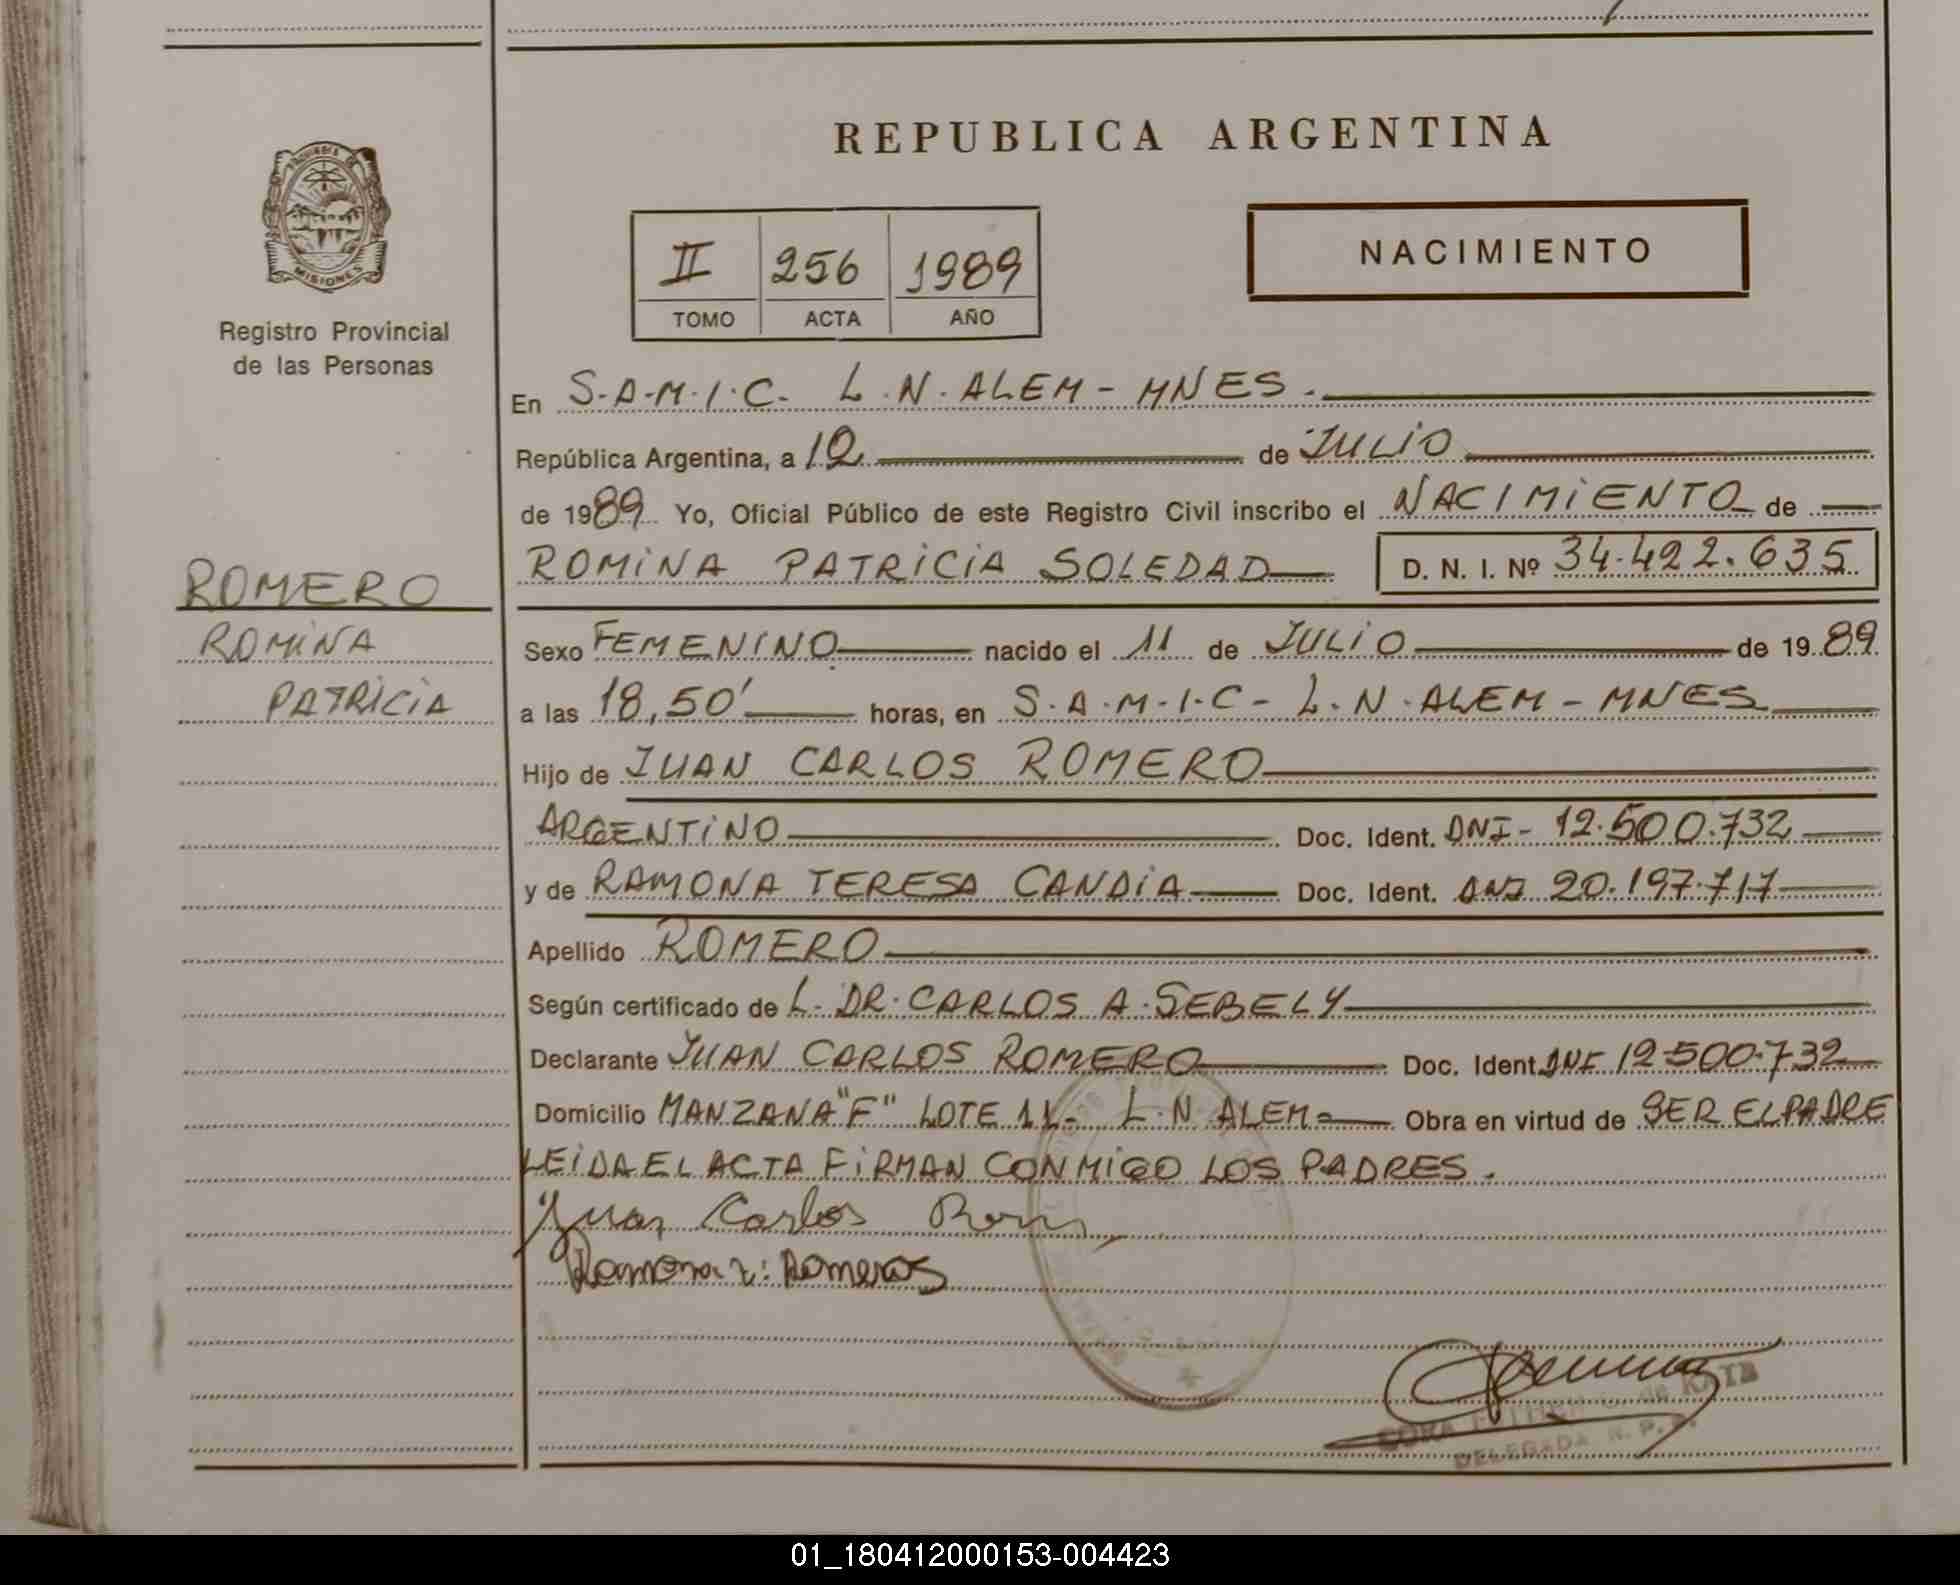 REPUBLICA ARGENTINA
MISIONES
Registro Provincial
de las Personas
II 256 1989
TOMO ACTA AÑO
NACIMIENTO
En S.A.M.I.C. L.N.ALEM - MNES.
República Argentina, a 12 de JULIO
de 1989 Yo, Oficial Público de este Registro Civil inscribo el NACIMIENTO de
ROMERO
ROMINA
PATRICIA
ROMINA PATRICIA SOLEDAD D. N. I. Nº 34.422.635
Sexo FEMENINO nacido el 11 de JULIO de 1989
a las 18,50' horas, en S.A.M.I.C - L.N.ALEM - MNES
Hijo de JUAN CARLOS ROMERO
ARGENTINO Doc. Ident. DNI - 12.500.732
y de RAMONA TERESA CANDIA Doc. Ident. DNI 20.197.717
Apellido ROMERO
Según certificado de L. DR. CARLOS A. SEBELY
Declarante JUAN CARLOS ROMERO Doc. Ident. DNI 12.500.732
Domicilio MANZANA "F" LOTE 11 - L.N.ALEM - Obra en virtud de SER EL PADRE
LEIDA EL ACTA FIRMAN CONMIGO LOS PADRES.
Juan Carlos
Ramona
DELEGADA R. P. P.
01_180412000153-004423